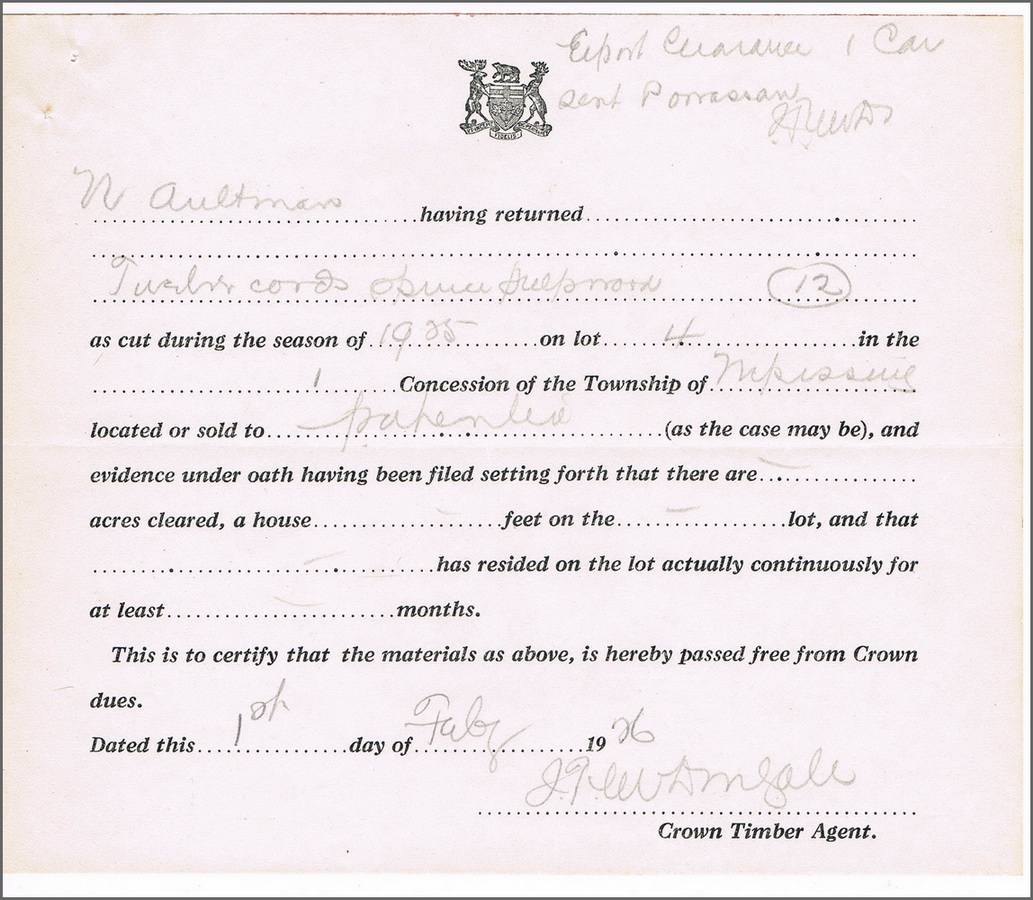 Export Clearance 1 Car
sent
N Aultman having returned
Twelve cords spruce pulpwood 12
as cut during the season of 1925 on lot 4 in the
1 Concession of the Township of
located or sold to patented (as the case may be), and
evidence under oath having been filed setting forth that there are
acres cleared, a house feet on the lot, and that
has resided on the lot actually continuously for
at least months.
This is to certify that the materials as above, is hereby passed free from Crown
dues.
Dated this 1st day of Feby 1926
Crown Timber Agent.